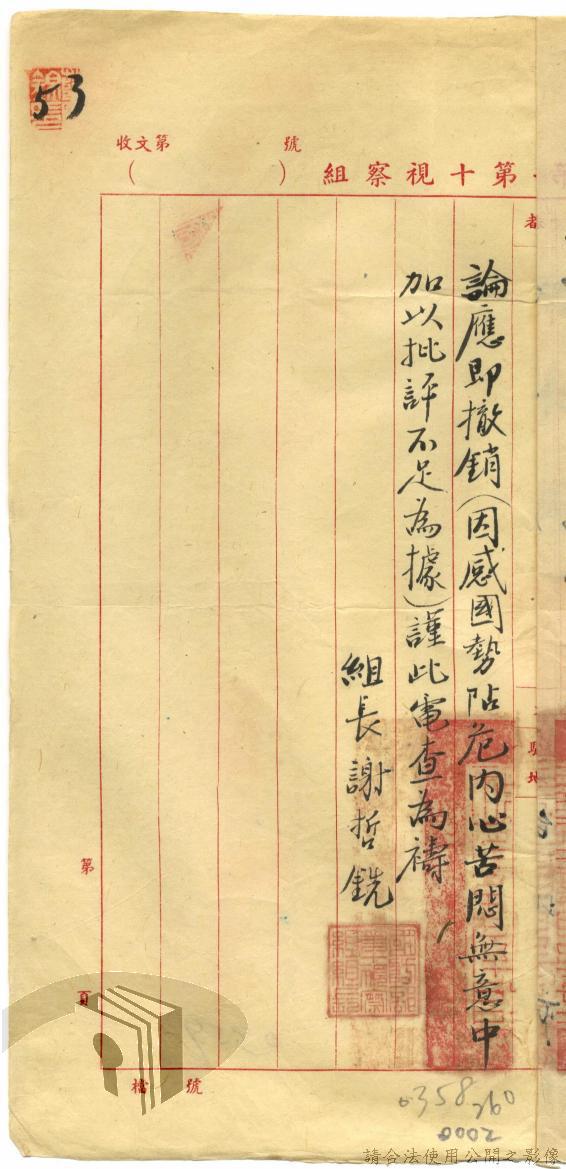 53
收文第　號
（　）
第十視察組
者
駐地
論應即撤銷（因感國勢阽危內心苦悶無意中
加以批評不足為據）謹此電查為禱
組長謝哲銑
第　頁
檔　號
0358
260
2000
請合法使用公開之影像